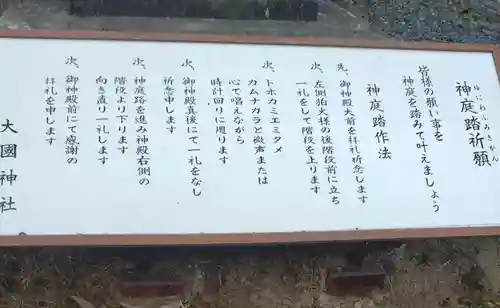 神庭踏祈願
ゆにわふみきがん
皆様の願い事を
神庭を踏みて叶えましょう
神庭踏作法
先、御神殿大前を拝礼祈念します
次、左側狛犬様の後階段前に立ち
一礼をして階段を上ります
次、トホカミエミタメ
カムナカラと微声または
心で唱えながら
時計回りに廻ります
次、御神殿真後にて一礼をなし
祈念申します
次、神庭路を進み神殿右側の
階段より下ります
向き直り一礼します
次、御神殿前にて感謝の
拝礼を申します
大國神社